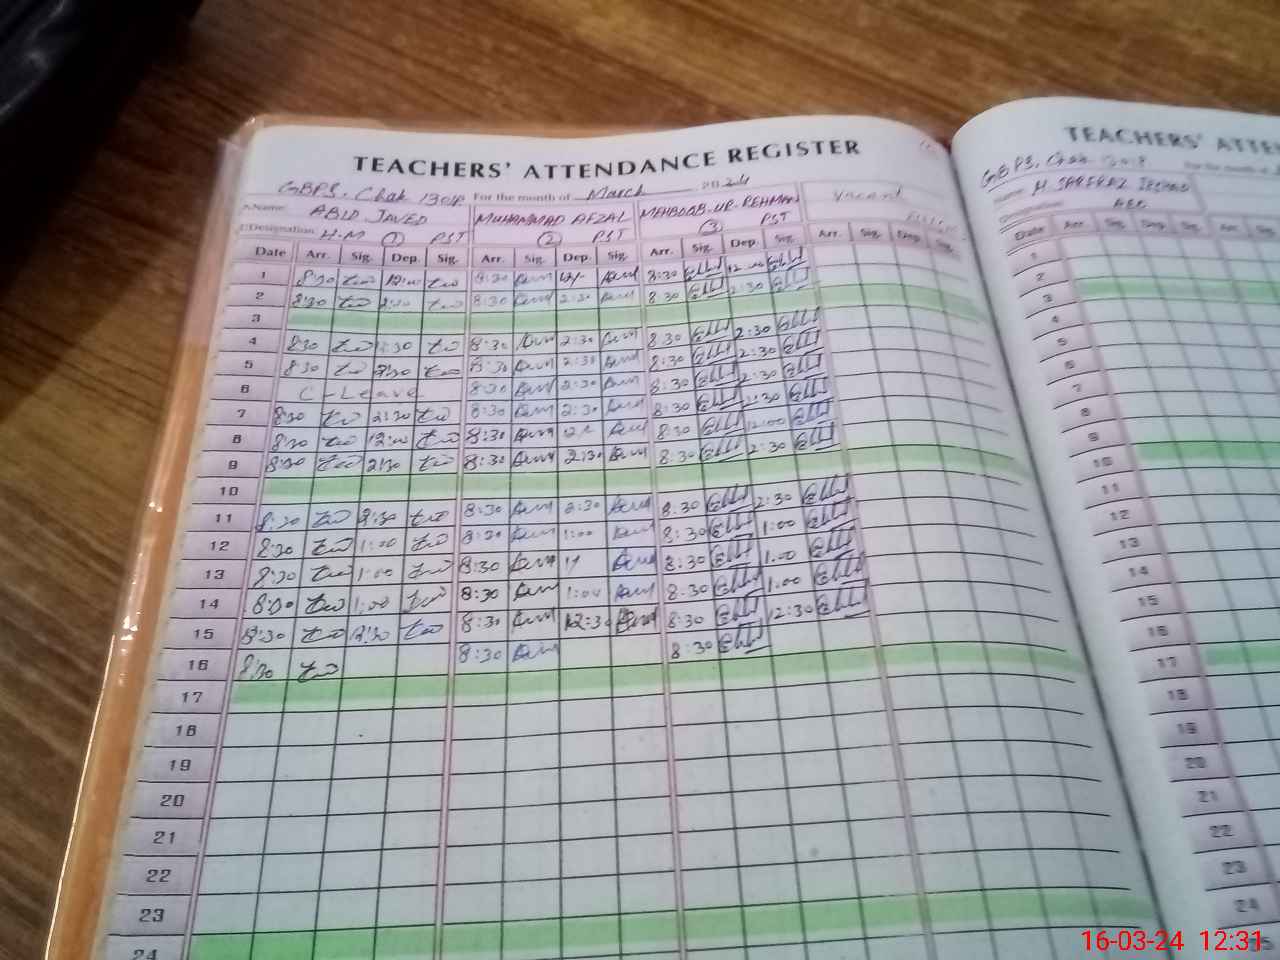 TEACHERS' ATTENDANCE REGISTER
GBPS. Chak 130 For the month of March 2024
Name: ABID JAVED MUHAMMAD AFZAL MEHBOOB-UR-REHMAN Vacant
Designation H.M ① PST ② PST ③ PST
Date Arr. Sig. Dep. Sig. Arr. Sig. Dep. Sig. Arr. Sig. Dep. Sig. Arr. Sig. Dep. Sig.
1 8:30 12:00 8:30 8:30 12:00
2 8:30 2:30 8:30 2:30 8:30 2:30
3
4 8:30 2:30 8:30 2:30 8:30 2:30
5 8:30 2:30 8:30 2:30 8:30 2:30
6 C-Leave 8:30 2:30 8:30 2:30
7 8:30 2:30 8:30 2:30 8:30 2:30
8 8:30 12:00 8:30 8:30 12:00
9 8:30 2:30 8:30 2:30 8:30 2:30
10
11 8:30 2:30 8:30 2:30 8:30 2:30
12 8:30 1:00 8:30 1:00 8:30 1:00
13 8:30 1:00 8:30 11 8:30 1:00
14 8:30 1:00 8:30 1:00 8:30 1:00
15 8:30 12:30 8:30 12:30 8:30 12:30
16 8:30 8:30 8:30
17
18
19
20
21
22
23
24
TEACHERS' ATTEN
GBPS. Chak
Name: M SARFRAZ
Designation
Date Arr. Sig. Dep. Sig. Arr. Sig.
1
2
3
4
5
6
7
8
9
10
11
12
13
14
15
16
17
18
19
20
21
22
23
24
25
16-03-24 12:31